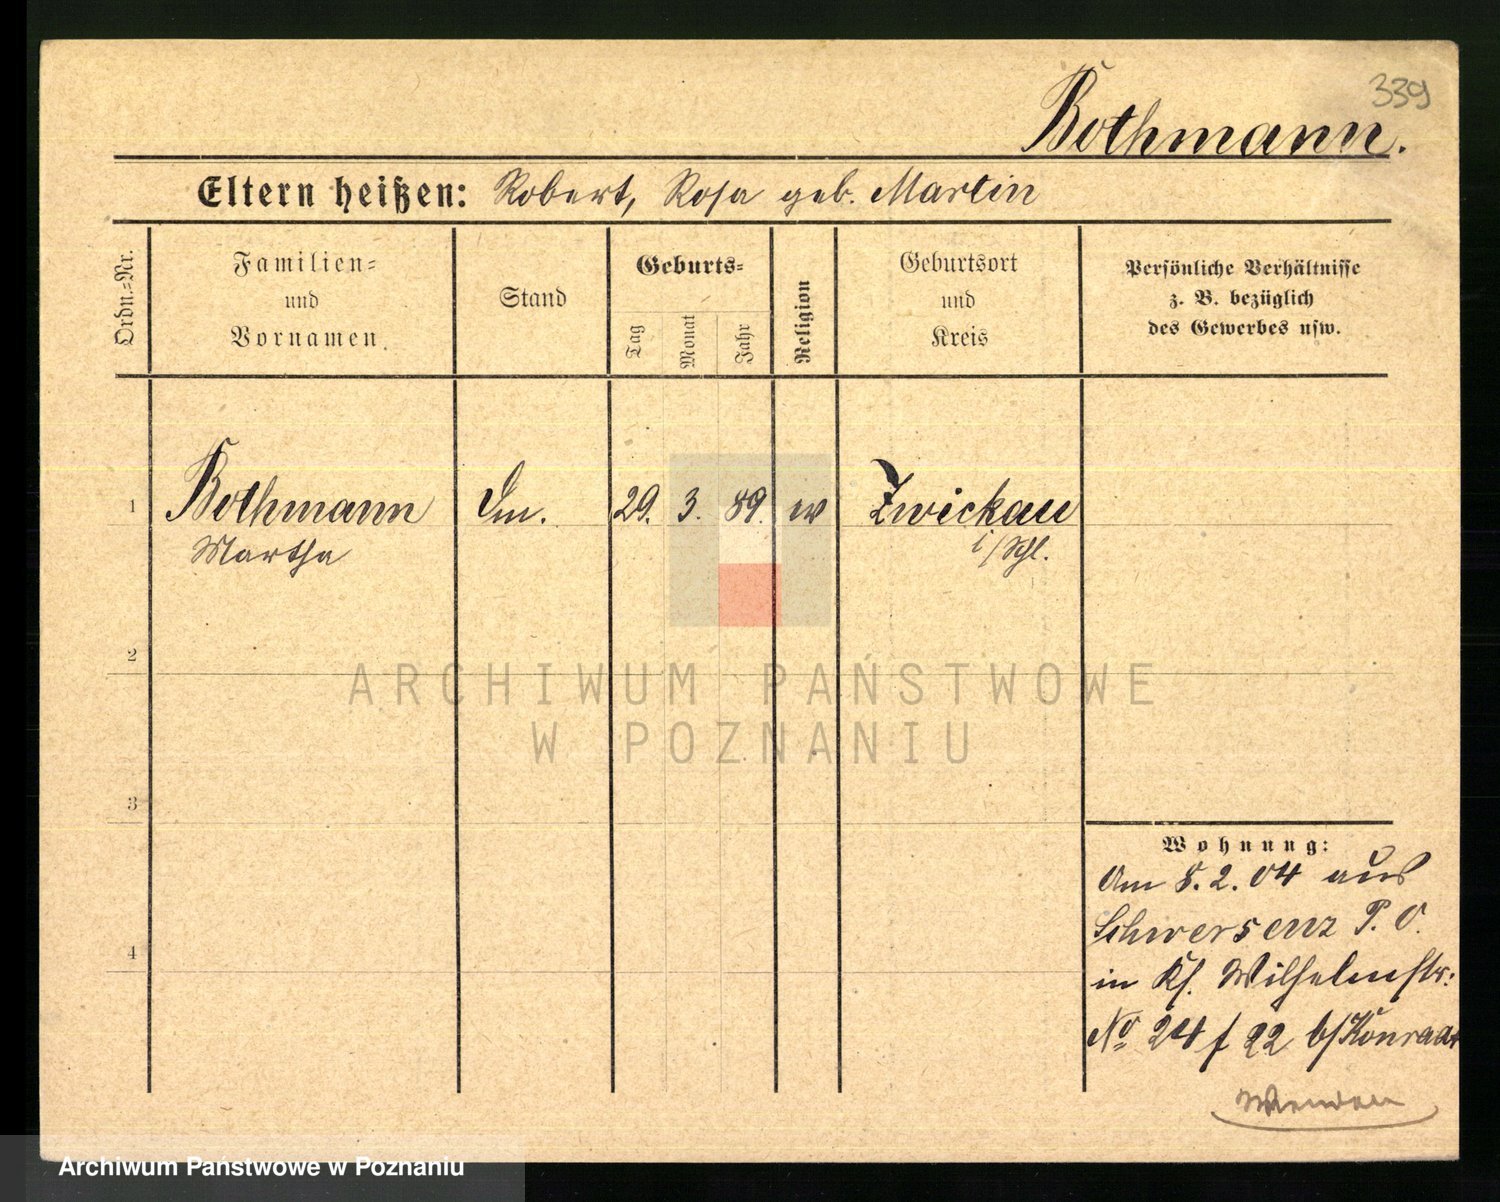 339
Bothmann.
Eltern heißen: Robert, Rosa geb. Martin
Ordn.=Nr.
Familien=
und
Vornamen
Stand
Geburts=
Tag
Monat
Jahr
Religion
Geburtsort
und
Kreis
Persönliche Verhältnisse
z. B. bezüglich
des Gewerbes usw.
1 Bothmann 29. 3. 89. Zwickau
Martha i/Schl.
2
3
4
ARCHIWUM PAŃSTWOWE
W POZNANIU
Wohnung:
Am 5.2.04 aus
Schwersenz P. O.
in Wilhelmstr.
No 24 f 22 b/
Wenden
Archiwum Państwowe w Poznaniu